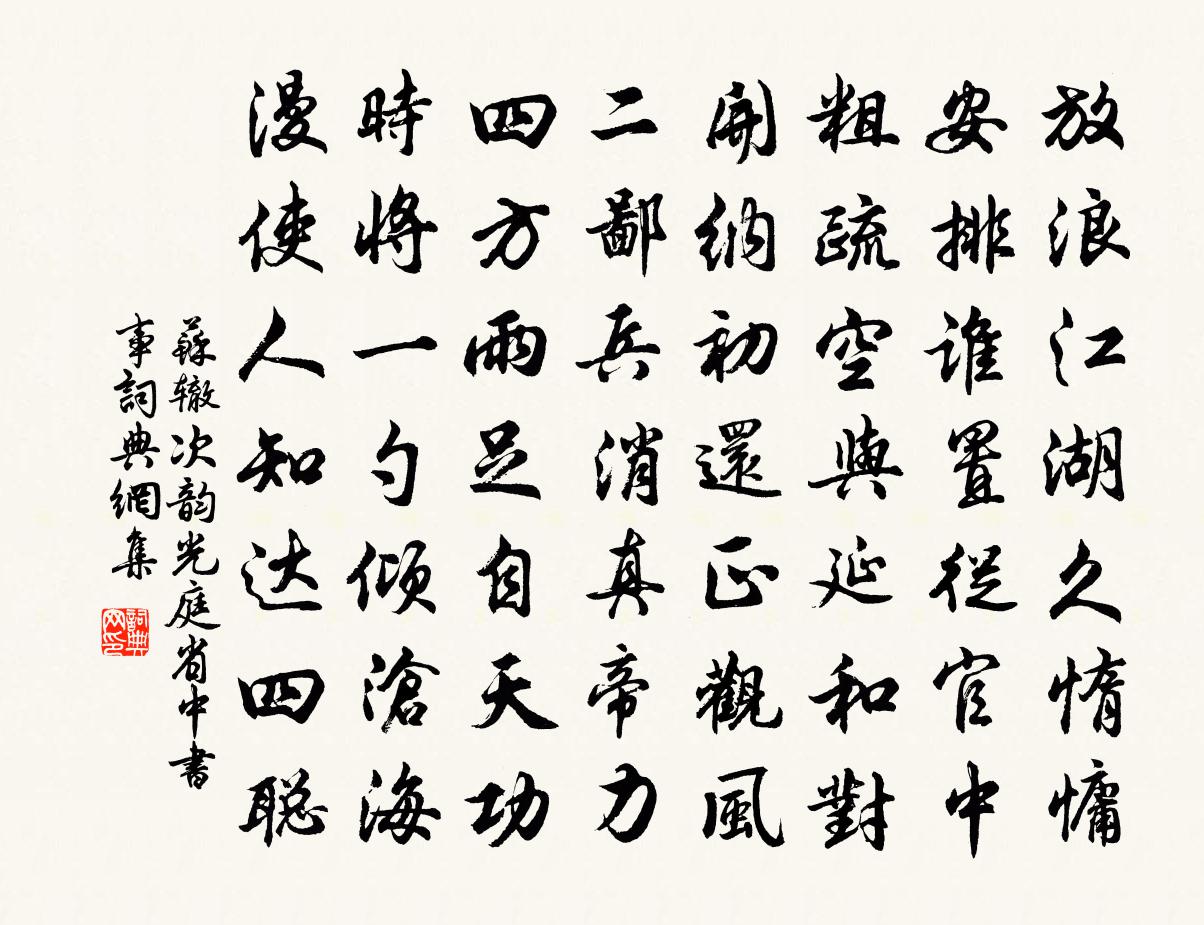 放浪江湖久惰慵
安排誰置從官中
粗疏空與延和對
開納初還正觀風
二鄙兵消真帝力
四方雨足自天功
時將一勺傾滄海
漫使人知达四聪
蘇辙次韵光庭省中書
事詞典網集
詞典网印